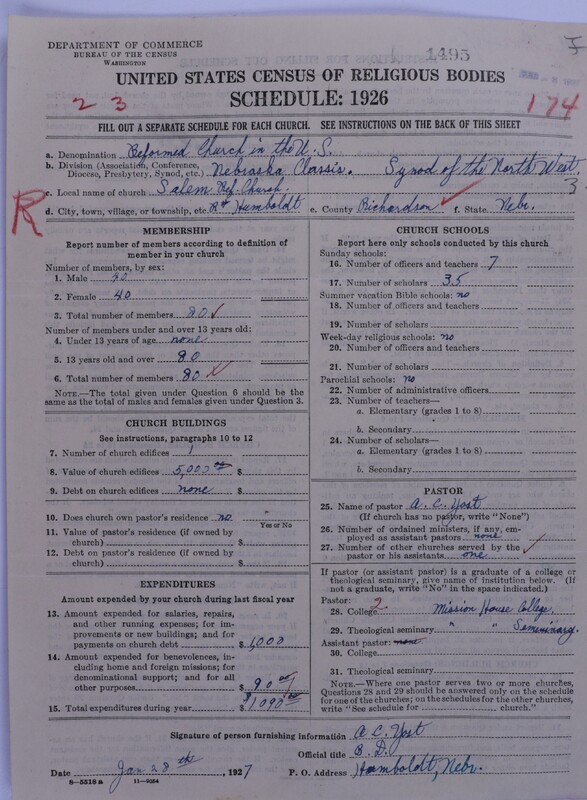 DEPARTMENT OF COMMERCE
BUREAU OF THE CENSUS
WASHINGTON
1495
UNITED STATES CENSUS OF RELIGIOUS BODIES
2 3
SCHEDULE: 1926
174
FILL OUT A SEPARATE SCHEDULE FOR EACH CHURCH. SEE INSTRUCTIONS ON THE BACK OF THIS SHEET
a. Denomination Reformed Church in the U.S.
b. Division (Association, Conference, Diocese, Presbytery, Synod, etc.) Nebraska Classis. Synod of the North West.
3
c. Local name of church Salem Ref. Church.
R
d. City, town, village, or township, etc. Humboldt e. County Richardson f. State Nebr.
MEMBERSHIP
Report number of members according to definition of
member in your church
Number of members, by sex:
1. Male
2. Female 40
3. Total number of members 80
Number of members under and over 13 years old:
4. Under 13 years of age none
5. 13 years old and over 80
6. Total number of members 80
NOTE.—The total given under Question 6 should be the
same as the total of males and females given under Question 3.
CHURCH BUILDINGS
See instructions, paragraphs 10 to 12
7. Number of church edifices 1
8. Value of church edifices 5,000 00 $
9. Debt on church edifices none $
10. Does church own pastor's residence no
Yes or No
11. Value of pastor's residence (if owned by
church) $
12. Debt on pastor's residence (if owned by
church) $
EXPENDITURES
Amount expended by your church during last fiscal year
13. Amount expended for salaries, repairs,
and other running expenses; for im-
provements or new buildings; and for
payments on church debt $ 1,000
14. Amount expended for benevolences,
including home and foreign missions; for
denominational support; and for all
other purposes $ 90 00
15. Total expenditures during year $ 1090 00
CHURCH SCHOOLS
Report here only schools conducted by this church
Sunday schools:
16. Number of officers and teachers 7
17. Number of scholars 35
Summer vacation Bible schools: no
18. Number of officers and teachers
19. Number of scholars
Week-day religious schools: no
20. Number of officers and teachers
21. Number of scholars
Parochial schools: no
22. Number of administrative officers
23. Number of teachers—
a. Elementary (grades 1 to 8)
b. Secondary
24. Number of scholars—
a. Elementary (grades 1 to 8)
b. Secondary
PASTOR
25. Name of pastor A. C. Yost
(If church has no pastor, write "None")
26. Number of ordained ministers, if any, em-
ployed as assistant pastors none
27. Number of other churches served by the
pastor or his assistants one
If pastor (or assistant pastor) is a graduate of a college or
theological seminary, give name of institution below. (If
not a graduate, write "No" in the space indicated.)
Pastor:
28. College 2 Mission House College.
29. Theological seminary " " Semininary.
Assistant pastor: none
30. College
31. Theological seminary
NOTE.—Where one pastor serves two or more churches,
Questions 28 and 29 should be answered only on the schedule
for one of the churches; on the schedules for the other churches,
write "See schedule for ........ church."
Signature of person furnishing information A C. Yost
Official title B. D.
Date Jan 28 th, 1927 P. O. Address Humboldt, Nebr.
8—5518 a 11—2664